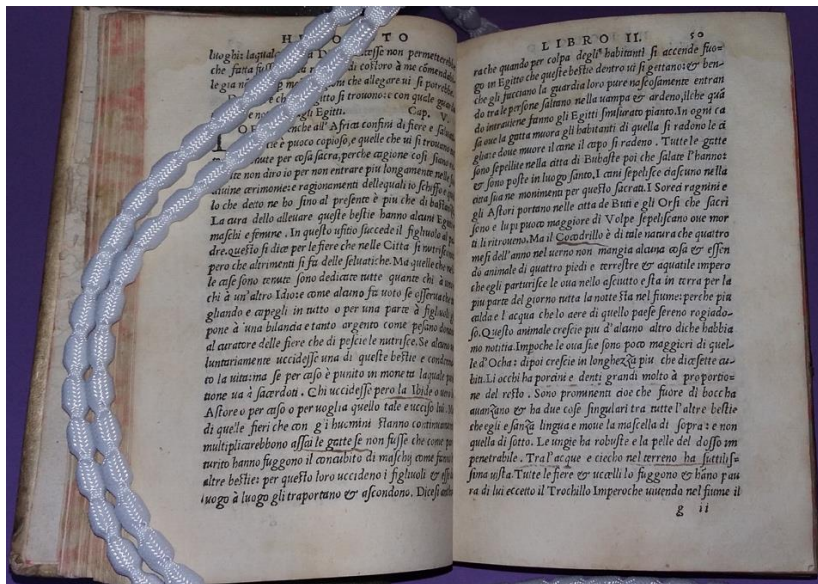 HERODOTO
luoghi: laquale
che fatta fuss
legia
Cap. V.
no gli Egitti.
enche all' Africa confini di fiere e salua
cie è puoco copioso, e quelle che ui si trouano
tenute per cosa sacra, perche cagione cosi siano
te non diro io per non entrare piu longamente nelle
diuine cerimonie: e ragionamenti delle quali io schiffo e
lo che detto ne ho fino al presente è piu che di bast
La cura dello alleuare queste bestie hanno alcuni Egit
maschi e femine. In questo uffitio succede il figliuolo al
dre. questo si dice per le fiere che nelle Citta si nutrisco
pero che altrimenti si fa delle seluatiche. Ma quelle che
le case sono tenute sono dedicate tutte quante chi à
chi à un'altro Idio: e come alcuno fa uoto se osserua che
gliando e capegli in tutto o per una parte à figliuoli
pone à una bilancia e tanto argento come pesano
al curatore delle fiere che di pescie le nutrisce. Se alcuno
luntariamente uccidesse una di queste bestie e condenna
to la uita: ma se per caso è punito in moneta la quale
tione ua à sacerdoti. Chi uccidesse pero la Ibide o uero
Astore o per caso o per uoglia quello tale e ucciso lui. M
di quelle fieri che con gi huomini stanno continuam
multiplicarebbono assai le gatte se non fusse che come par
turito hanno fuggono il concubito di maschi come fanno
altre bestie: per questo loro uccidono i figliuoli & essi
luogo à luogo gli traportano & ascondono. Dicesi
LIBRO II. 50
ra che quando per colpa degli habitanti si accende fuo-
go in Egitto che queste bestie dentro ui si gettano: & ben-
che gli facciano la guardia loro pure nascosamente entran
do tra le persone saltano nella uampa & ardeno, ilche quā
do intrauiene fanno gli Egitti smisurato pianto. In ogni ca
sa oue la gatta muora gli habitanti di quella si radono le ci
glia: e doue muore il cane il capo si radeno. Tutte le gatte
sono sepellite nella citta di Bubaste poi che salate l'hanno:
& sono poste in luogo santo, I cani sepelisce ciascuno nella
citta sua ne monimenti per questo sacrati. I Sorci ragnini e
gli Astori portano nelle citta de Buti e gli Orsi che sacri
sono e lupi puoco maggiore di Volpe sepeliscano oue mor
ti li ritroueno. Ma il Cocodrillo è di tale natura che quattro
mesi dell'anno nel uerno non mangia alcuna cosa & essen
do animale di quattro piedi e terrestre & aquatile impero
che egli parturisce le oua nello asciutto e sta in terra per la
piu parte del giorno tutta la notte sta nel fiume: perche piu
calda e l acqua che lo aere di quello paese sereno rogiado-
so. Questo animale crescie piu d'alcuno altro di che habbia
mo notitia. Impoche le oua sue sono poco maggiori di quel-
le d'Ocha: dipoi crescie in longhezza piu che dicesette cu-
biti. Li occhi ha porcini e denti grandi molto à proportio=
ne del resto. Sono prominenti cioe che fuore di boccha
auanzano & ha due cose singulari tra tutte l'altre bestie
che egli e sanza lingua e moue la mascella di sopra: e non
quella di sotto. Le ungie ha robuste e la pelle del dosso im
penetrabile. Tra l'acque e ciecho nel terreno ha suttilis=
sima uista. Tutte le fiere & uccelli lo fuggono & hāno pau
ra di lui eccetto il Trochillo Imperoche uiuendo nel fiume il
g ii